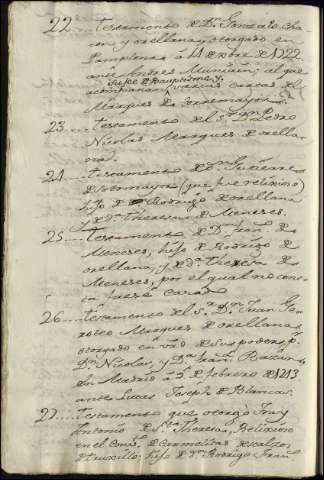 22.... testamento de Dn. Gonzalo Cha
con y orellana, otorgado en
Pamplona á 11 de de 1722
ante Andres ; el que
Fe de Bauptismo, y
acompañan varias cartas del
Marques de torremayor.
23.... testamento del Sr. Dn. Pedro
Nicolas Marques de orella
na.
24.... testamento de Dn. Gutierre
de sotomayor (que fue relixioso)
hijo de Dn. Rodrigo de orellana
y de Da. Theresa de Meneses.
25.... testamento de Dn. Juan de
Meneses, hijo de Rodrigo de
orellana, y de Da. Theresa de
Meneses, por el qual no cons
ta fuese casado
26.... testamento del Sr. Dn. Juan
Marques de orellana,
otorgado en vd. de sus poderes pr.
Dn. Nicolas, y Da. Franca.
en Madrid á 5 de febrero de 1713
ante Lucas Joseph de Blancas.
27.... testamento que otorgo Fray
Antonio de Sta. Theresa, Relixioso
en el Convto. de Carmelitas descalzos
de truxillo, hijo de Dn. Rodrigo